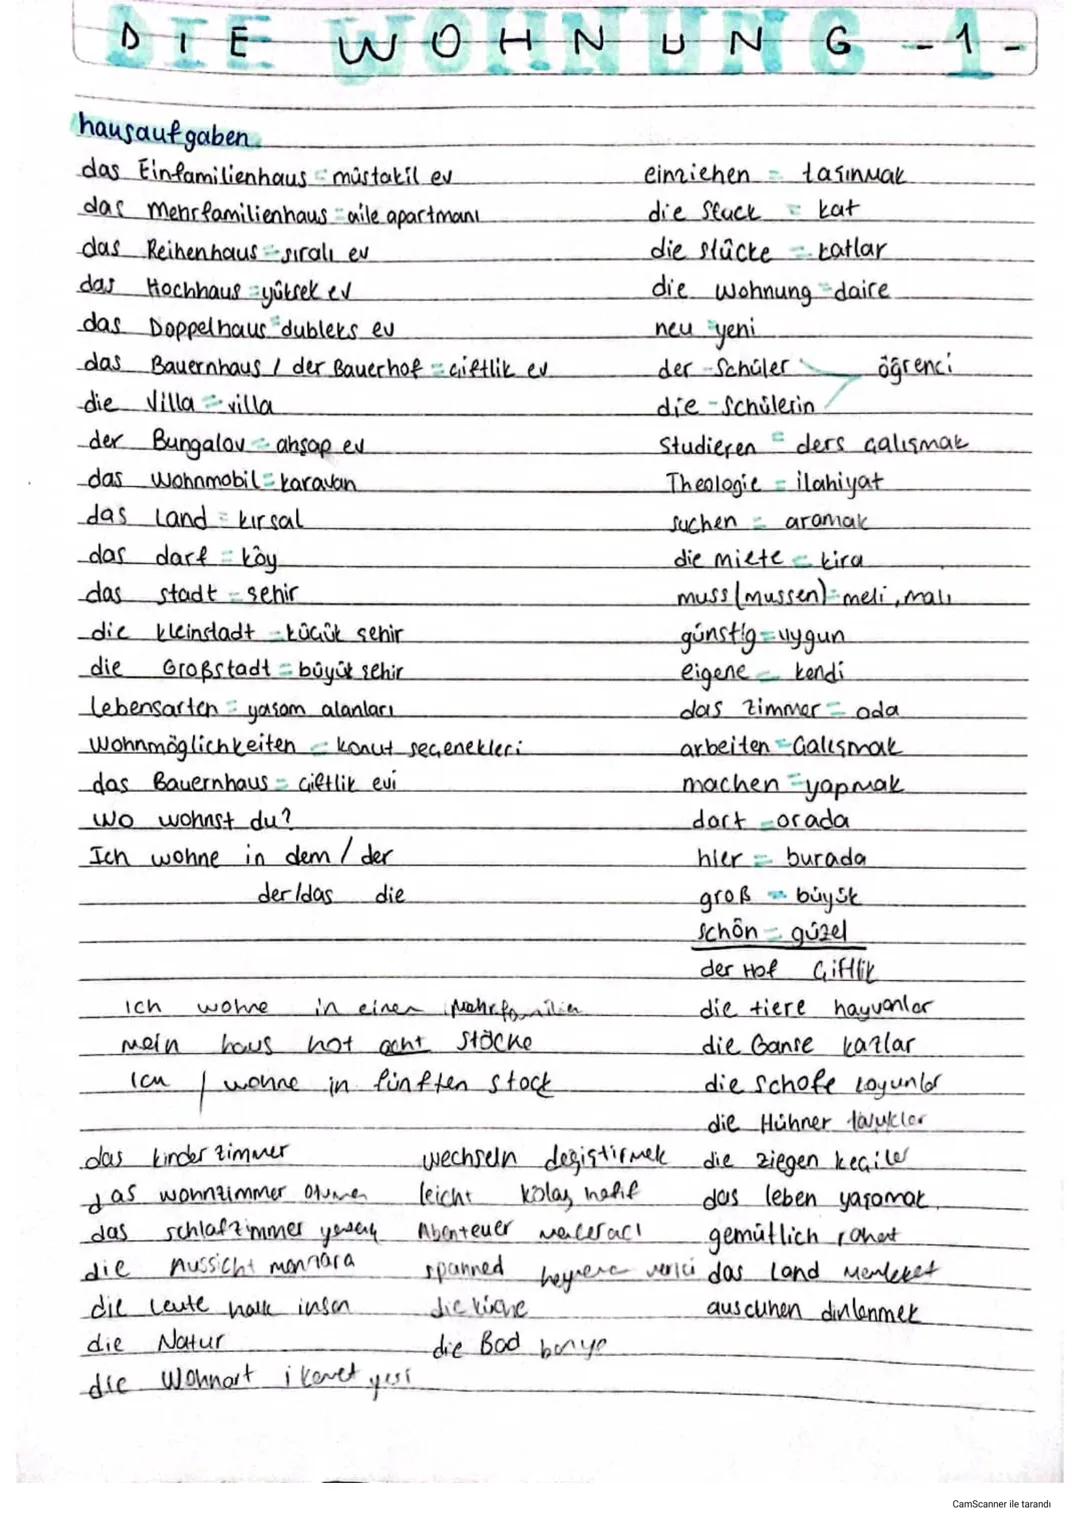 DIE WOHNUNG -1-
hausaufgaben
das Einfamilienhaus = müstakil ev
das Mehrfamilienhaus = aile apartmanı
das Reihenhaus = sıralı ev
das Hochhaus = yüksek ev
das Doppelhaus = dubleks ev
das Bauernhaus / der Bauerhof = çiftlik ev
die Villa = villa
der Bungalov = ahşap ev
das Wohnmobil = karavan
das Land = kırsal
das darf = köy
das stadt = şehir
die kleinstadt = küçük şehir
die Großstadt = büyük şehir
Lebensarten = yaşam alanları
Wohnmöglichkeiten = konut seçenekleri
das Bauernhaus = çiftlik evi
Wo wohnst du?
Ich wohne in dem / der
der/das die
Ich wohne in einen Mehrfamilien
Mein haus hat acht Stöcke
Ich / wohne in fünften stock
einziehen = taşınmak
die Stuck = kat
die stücke = katlar
die wohnung = daire
neu = yeni
der - Schüler öğrenci
die - Schülerin
Studieren = ders çalışmak
Theologie = ilahiyat
suchen = aramak
die miete = kira
muss (mussen) = meli, malı
günstig = uygun
eigene = kendi
das zimmer = oda
arbeiten = Çalışmak
machen = yapmak
dort = orada
hier = burada
groß = büyük
schön = güzel
der Hof Çiftlik
die tiere hayvanlar
die Ganse kazlar
die schafe koyunlar
die Hühner tavuklar
die ziegen keçiler
das leben yaşamak
gemütlich rahat
das Land Memleket
dinlenmek
das kinderzimmer
das wohnzimmer oturma
das schlafzimmer
die Aussicht manzara
die Leute halk insan
die Natur
die Wohnart ikamet yeri
wechseln değiştirmek
leicht kolay hafif
Abenteuer maceracı
spanned heyecan verici
die küche
die Bad banyo
CamScanner ile tarandı